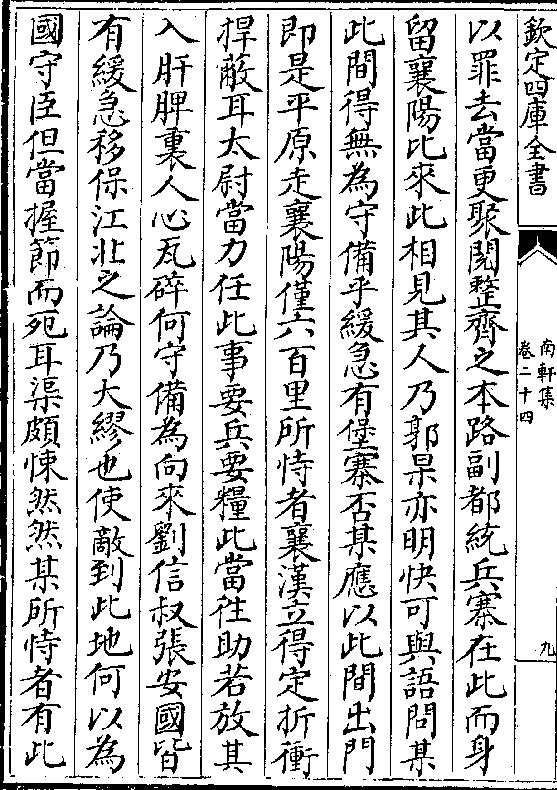 欽定四庫全書
南軒集
卷二十四
九
以罪去當更聚閱整齊之本路副都統兵寨在此而身
留襄陽比來此相見其人乃郭杲亦明快可與語問某
此間得無為守備乎緩急有堡寨否某應以此間出門
即是平原走襄陽僅六百里所恃者襄漢立得定折衝
捍蔽耳太尉當力任此事要兵要糧此當往助若放其
入肝脾裏人心瓦碎何守備為向來劉信叔張安國皆
有緩急移保江北之論乃大繆也使敵到此地何以為
國守臣但當握節而死耳渠頗悚然然某所恃者有此